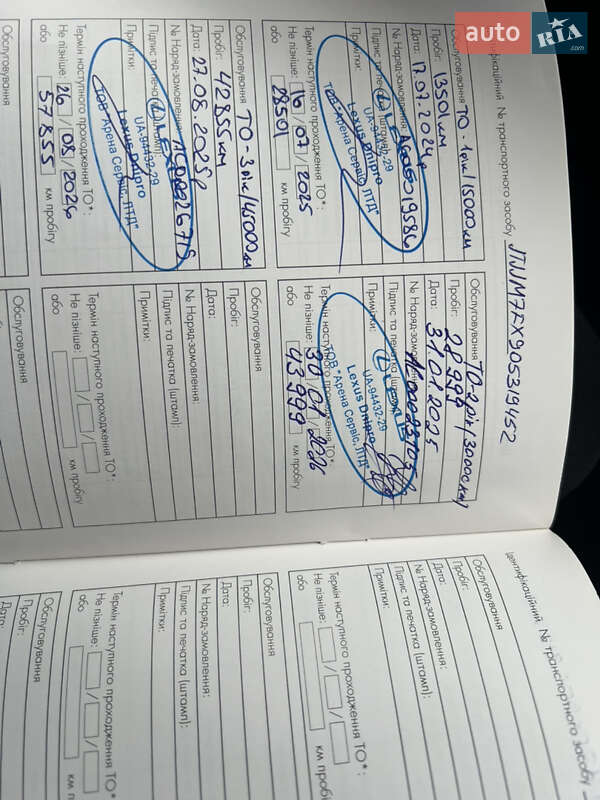 auto RIA .com
ідентифікаційний № транспортного засобу JTJJM7FX905319452
Обслуговування ТО-1рік/15000км
Пробіг: 13501км
Дата: 17.07.2024р
№ Наряд-замовлення:
Підпис та печатка (штамп):
Примітки:
UA-94432-29
Lexus Dnipro
ТОВ "Арена Сервіс, ЛТД"
Термін наступного проходження ТО*:
Не пізніше: 16 / 07 / 2025
або 28501 км пробігу
Обслуговування ТО-2рік/30000км
Пробіг: 28999
Дата: 31.01.2025
№ Наряд-замовлення:
Підпис та печатка (штамп):
Примітки:
UA-94432-29
Lexus Dnipro
ТОВ "Арена Сервіс, ЛТД"
Термін наступного проходження ТО*:
Не пізніше: 30 / 01 / 2026
або 43999 км пробігу
Обслуговування ТО-3рік/45000км
Пробіг: 42855км
Дата: 27.08.2025р
№ Наряд-замовлення:
Підпис та печатка (штамп):
Примітки:
UA-94432-29
Lexus Dnipro
ТОВ "Арена Сервіс, ЛТД"
Термін наступного проходження ТО*:
Не пізніше: 26 / 08 / 2026
або 57855 км пробігу
Обслуговування
Пробіг:
Дата:
№ Наряд-замовлення:
Підпис та печатка (штамп):
Примітки:
Термін наступного проходження ТО*:
Не пізніше: / /
або км пробігу
Обслуговування
Пробіг:
Обслуговування
Пробіг:
Дата:
ідентифікаційний № транспортного засобу
Обслуговування
Пробіг:
Дата:
№ Наряд-замовлення:
Підпис та печатка (штамп):
Примітки:
Термін наступного проходження ТО*:
Не пізніше: / /
або км пробігу
Обслуговування
Пробіг:
Дата:
№ Наряд-замовлення:
Підпис та печатка (штамп):
Примітки:
Термін наступного проходження ТО*
Не пізніше: / /
або км пробігу
Обслуговування
Пробіг:
Дата: